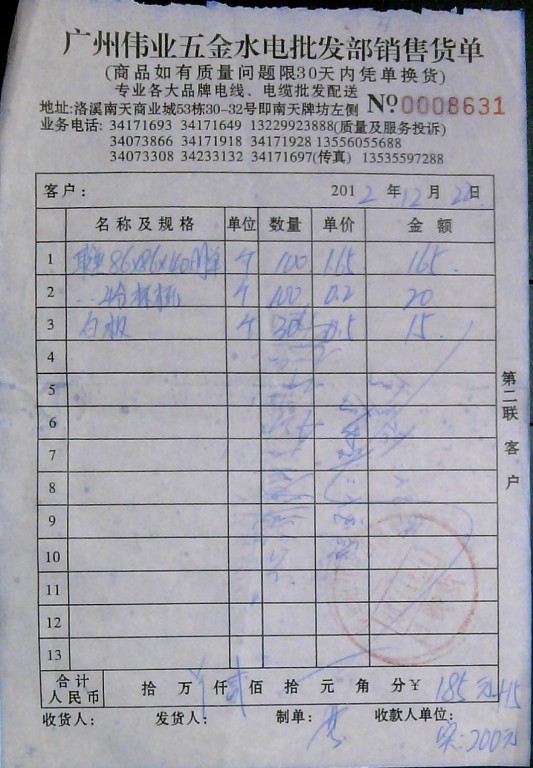 广州伟业五金水电批发部销售货单
(商品如有质量问题限30天内凭单换货)
专业各大品牌电线、电缆批发配送
地址:洛溪南天商业城53栋30-32号即南天牌坊左侧 №0008631
业务电话: 34171693 34171649 13229923888(质量及服务投诉)
34073866 34171918 34171928 13556055688
34073308 34233132 34171697(传真) 13535597288
客户: 2012年12月22日
名称及规格 单位 数量 单价 金额
1 86x86x40 个 100 1.65 165.
2 个 100 0.2 20
3 白板 个 30 0.5 15.
4
5
6
7
8
9
10
11
12
13
第二联 客户
合计人民币 拾 万 仟 贰 佰 拾 元 角 分 ¥ 185元+15
收货人: 发货人: 制单: 收款人单位:
实:200元